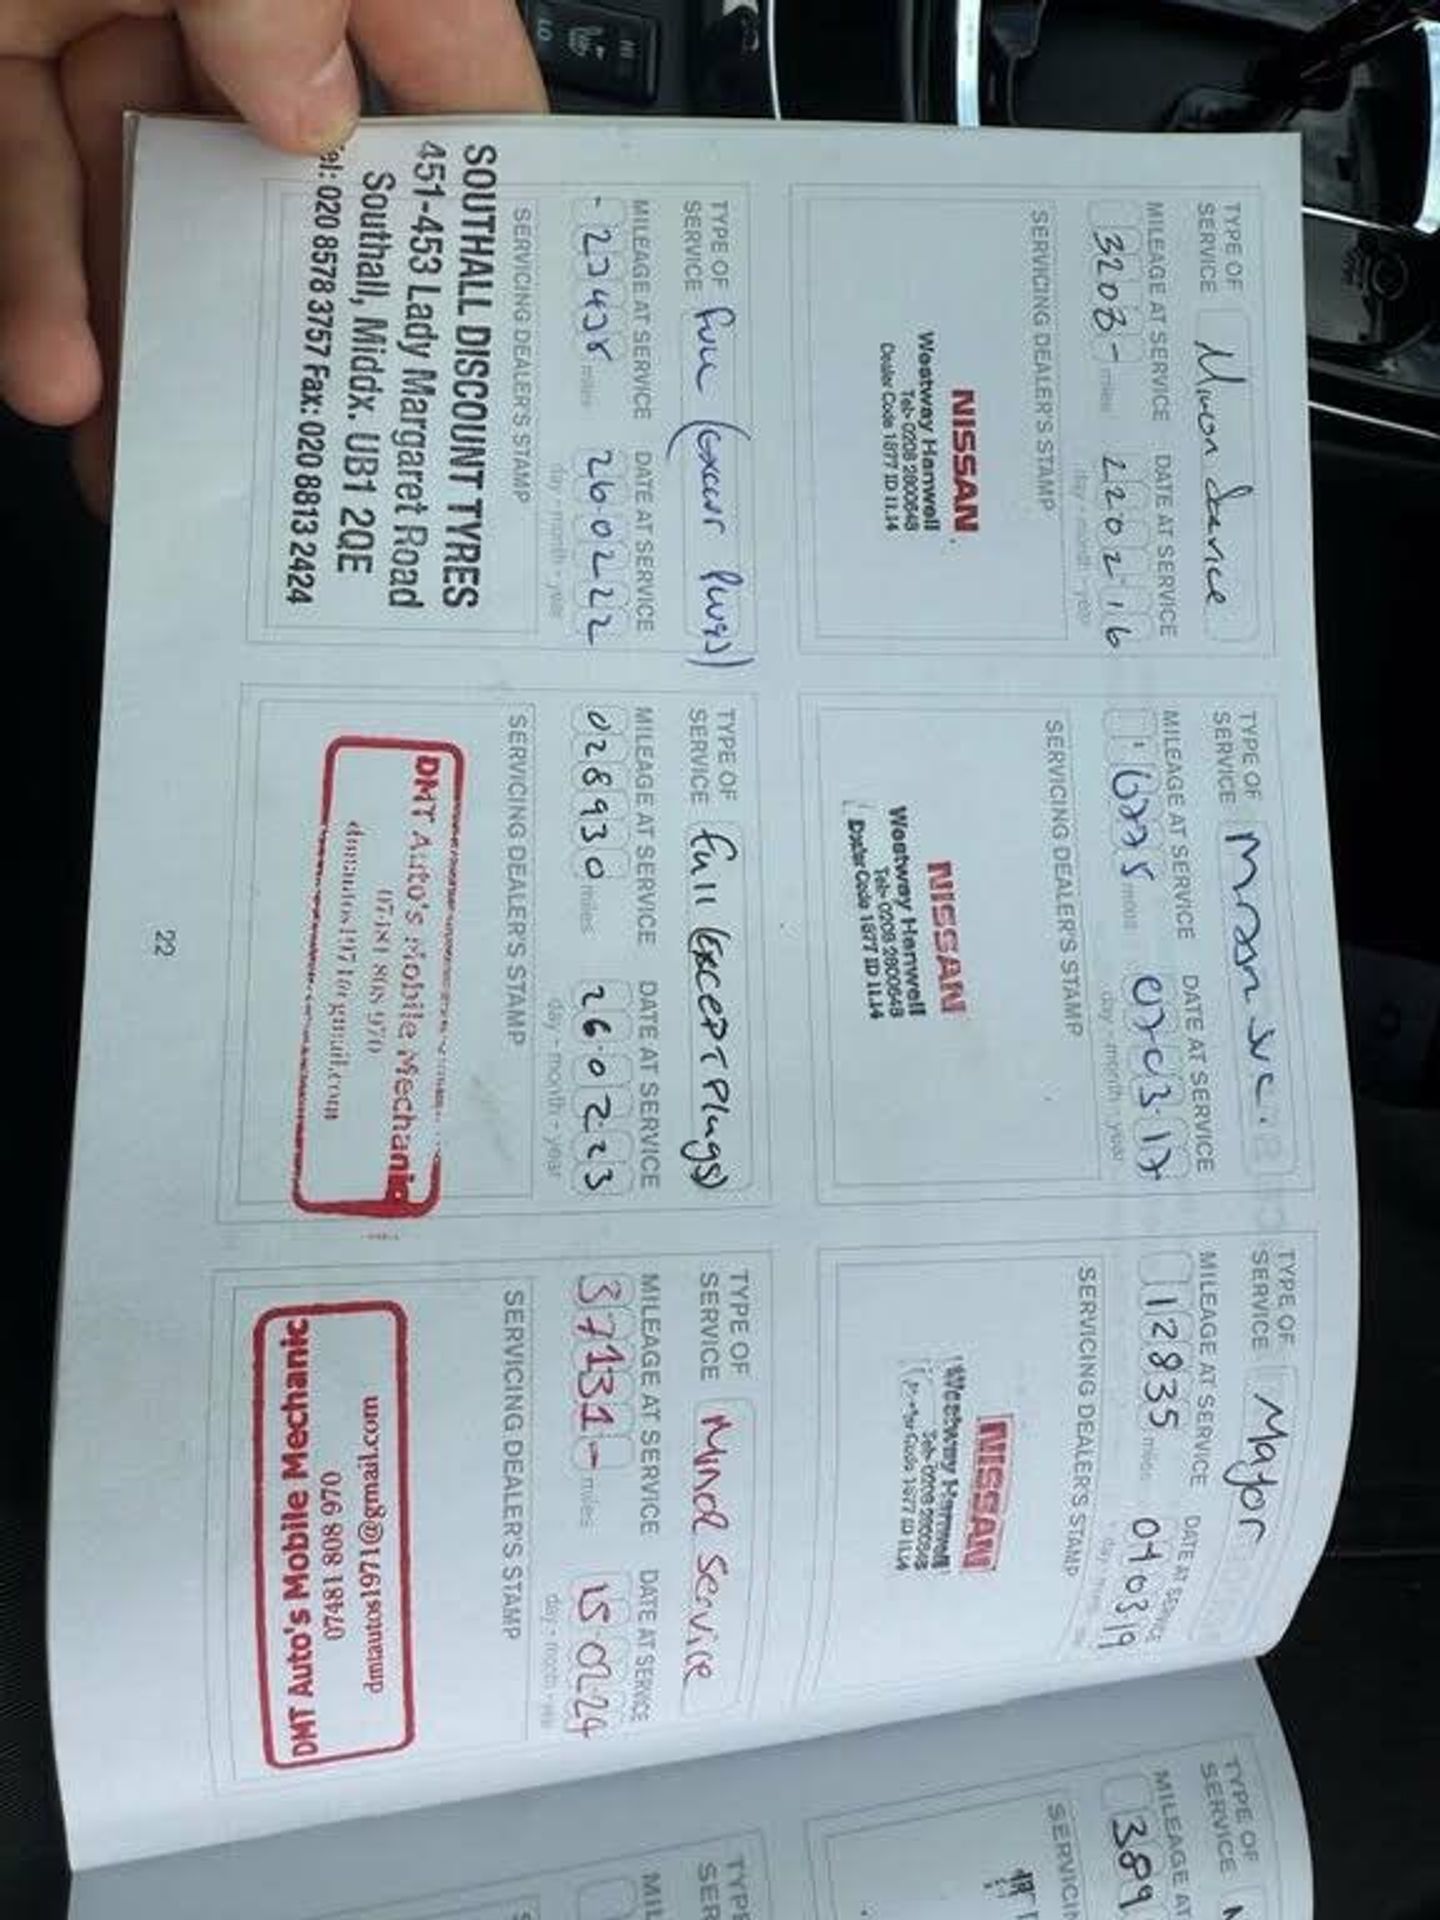 TYPE OF
SERVICE Minor Service
MILEAGE AT SERVICE DATE AT SERVICE
3208- miles 220216
day - month - year
SERVICING DEALER'S STAMP
NISSAN
Westway Hanwell
Tel- 0208 2800648
Dealer Code 1877 ID 11.14
TYPE OF
SERVICE
MILEAGE AT SERVICE DATE AT SERVICE
miles 070317
day - month - year
SERVICING DEALER'S STAMP
NISSAN
Westway Hanwell
Tel- 0208 2800648
Dealer Code 1877 ID 11.14
TYPE OF
SERVICE Major
MILEAGE AT SERVICE DATE AT SERVICE
12835 miles 040319
SERVICING DEALER'S STAMP
NISSAN
Westway Hanwell
Tel- 0208 2800648
Code 1877 ID 11.14
TYPE OF
SERVICE Full (
MILEAGE AT SERVICE DATE AT SERVICE
miles 260222
day - month - year
SERVICING DEALER'S STAMP
SOUTHALL DISCOUNT TYRES
451-453 Lady Margaret Road
Southall, Middx. UB1 2QE
el: 020 8578 3757 Fax: 020 8813 2424
TYPE OF
SERVICE full (Except Plugs)
MILEAGE AT SERVICE DATE AT SERVICE
028930 miles 260223
day - month - year
SERVICING DEALER'S STAMP
DMT Auto's Mobile Mechanic
TYPE OF
SERVICE Service
MILEAGE AT SERVICE DATE AT SERVICE
37131- miles 150224
day - month - year
SERVICING DEALER'S STAMP
dmtautos1971@gmail.com
07481 808 970
DMT Auto's Mobile Mechanic
22
TYPE OF
SERVICE
MILEAGE AT
389
SERVICIN
TYPE
SER
MIL